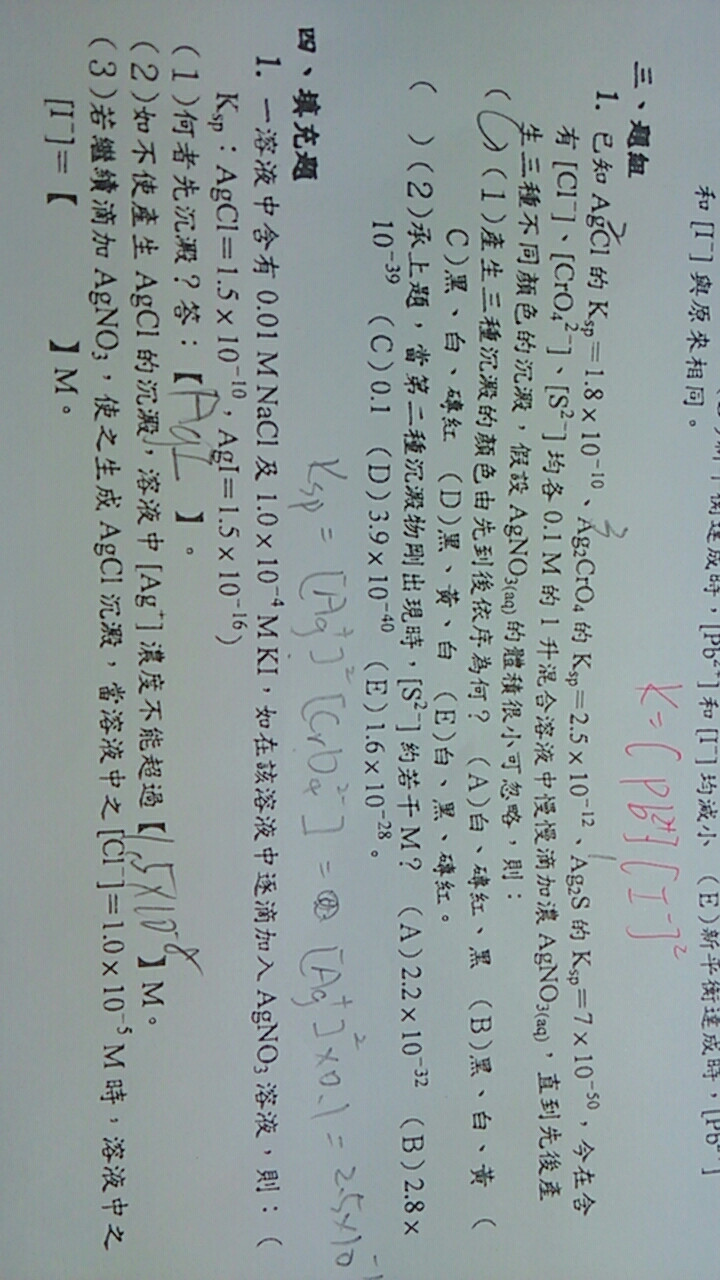 和 [I⁻] 與原來相同。
衡達成時，[Pb²⁺] 和 [I⁻] 均減小 (E)新平衡達成時，[Pb²⁺]
K=[Pb²⁺][I⁻]²
三、題組
1. 已知 AgCl 的 Ksp=1.8×10⁻¹⁰、Ag₂CrO₄ 的 Ksp=2.5×10⁻¹²、Ag₂S 的 Ksp=7×10⁻⁵⁰，今在含
有 [Cl⁻]、[CrO₄²⁻]、[S²⁻] 均各 0.1 M 的 1 升混合溶液中慢慢滴加濃 AgNO₃(aq)，直到先後產
生三種不同顏色的沉澱，假設 AgNO₃(aq) 的體積很小可忽略，則：
( C )(1)產生三種沉澱的顏色由先到後依序為何？ (A)白、磚紅、黑 (B)黑、白、黃 (
C)黑、白、磚紅 (D)黑、黃、白 (E)白、黑、磚紅。
( )(2)承上題，當第二種沉澱物剛出現時，[S²⁻] 約若干 M？ (A)2.2×10⁻³² (B)2.8×
10⁻³⁹ (C)0.1 (D)3.9×10⁻⁴⁰ (E)1.6×10⁻²⁸。
Ksp = [Ag⁺]²[CrO₄²⁻] = [Ag⁺]²×0.1 = 2.5×10⁻¹
四、填充題
1. 一溶液中含有 0.01 M NaCl 及 1.0×10⁻⁴ M KI，如在該溶液中逐滴加入 AgNO₃ 溶液，則：(
Ksp：AgCl=1.5×10⁻¹⁰, AgI=1.5×10⁻¹⁶)
(1)何者先沉澱？答：【AgI】。
(2)如不使產生 AgCl 的沉澱，溶液中 [Ag⁺] 濃度不能超過【1.5×10⁻⁸】M。
(3)若繼續滴加 AgNO₃，使之生成 AgCl 沉澱，當溶液中之 [Cl⁻]=1.0×10⁻⁵ M 時，溶液中之
[I⁻]=【 】M。